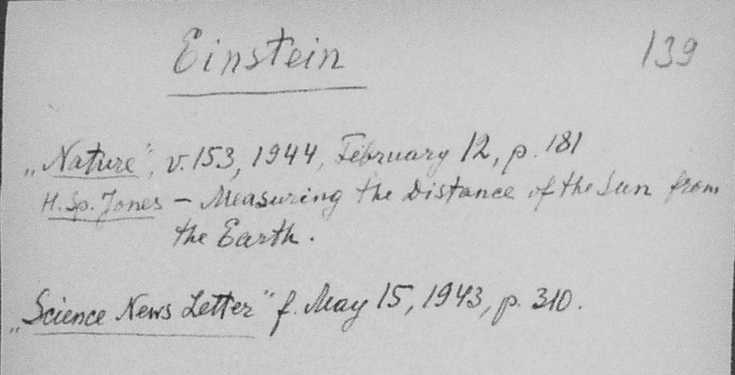 Einstein
139
„Nature", v.153, 1944, February 12, p. 181
H. Sp. Jones – Measuring the Distance of the Sun from
the Earth.
„Science News Letter" f. May 15, 1943, p. 310.